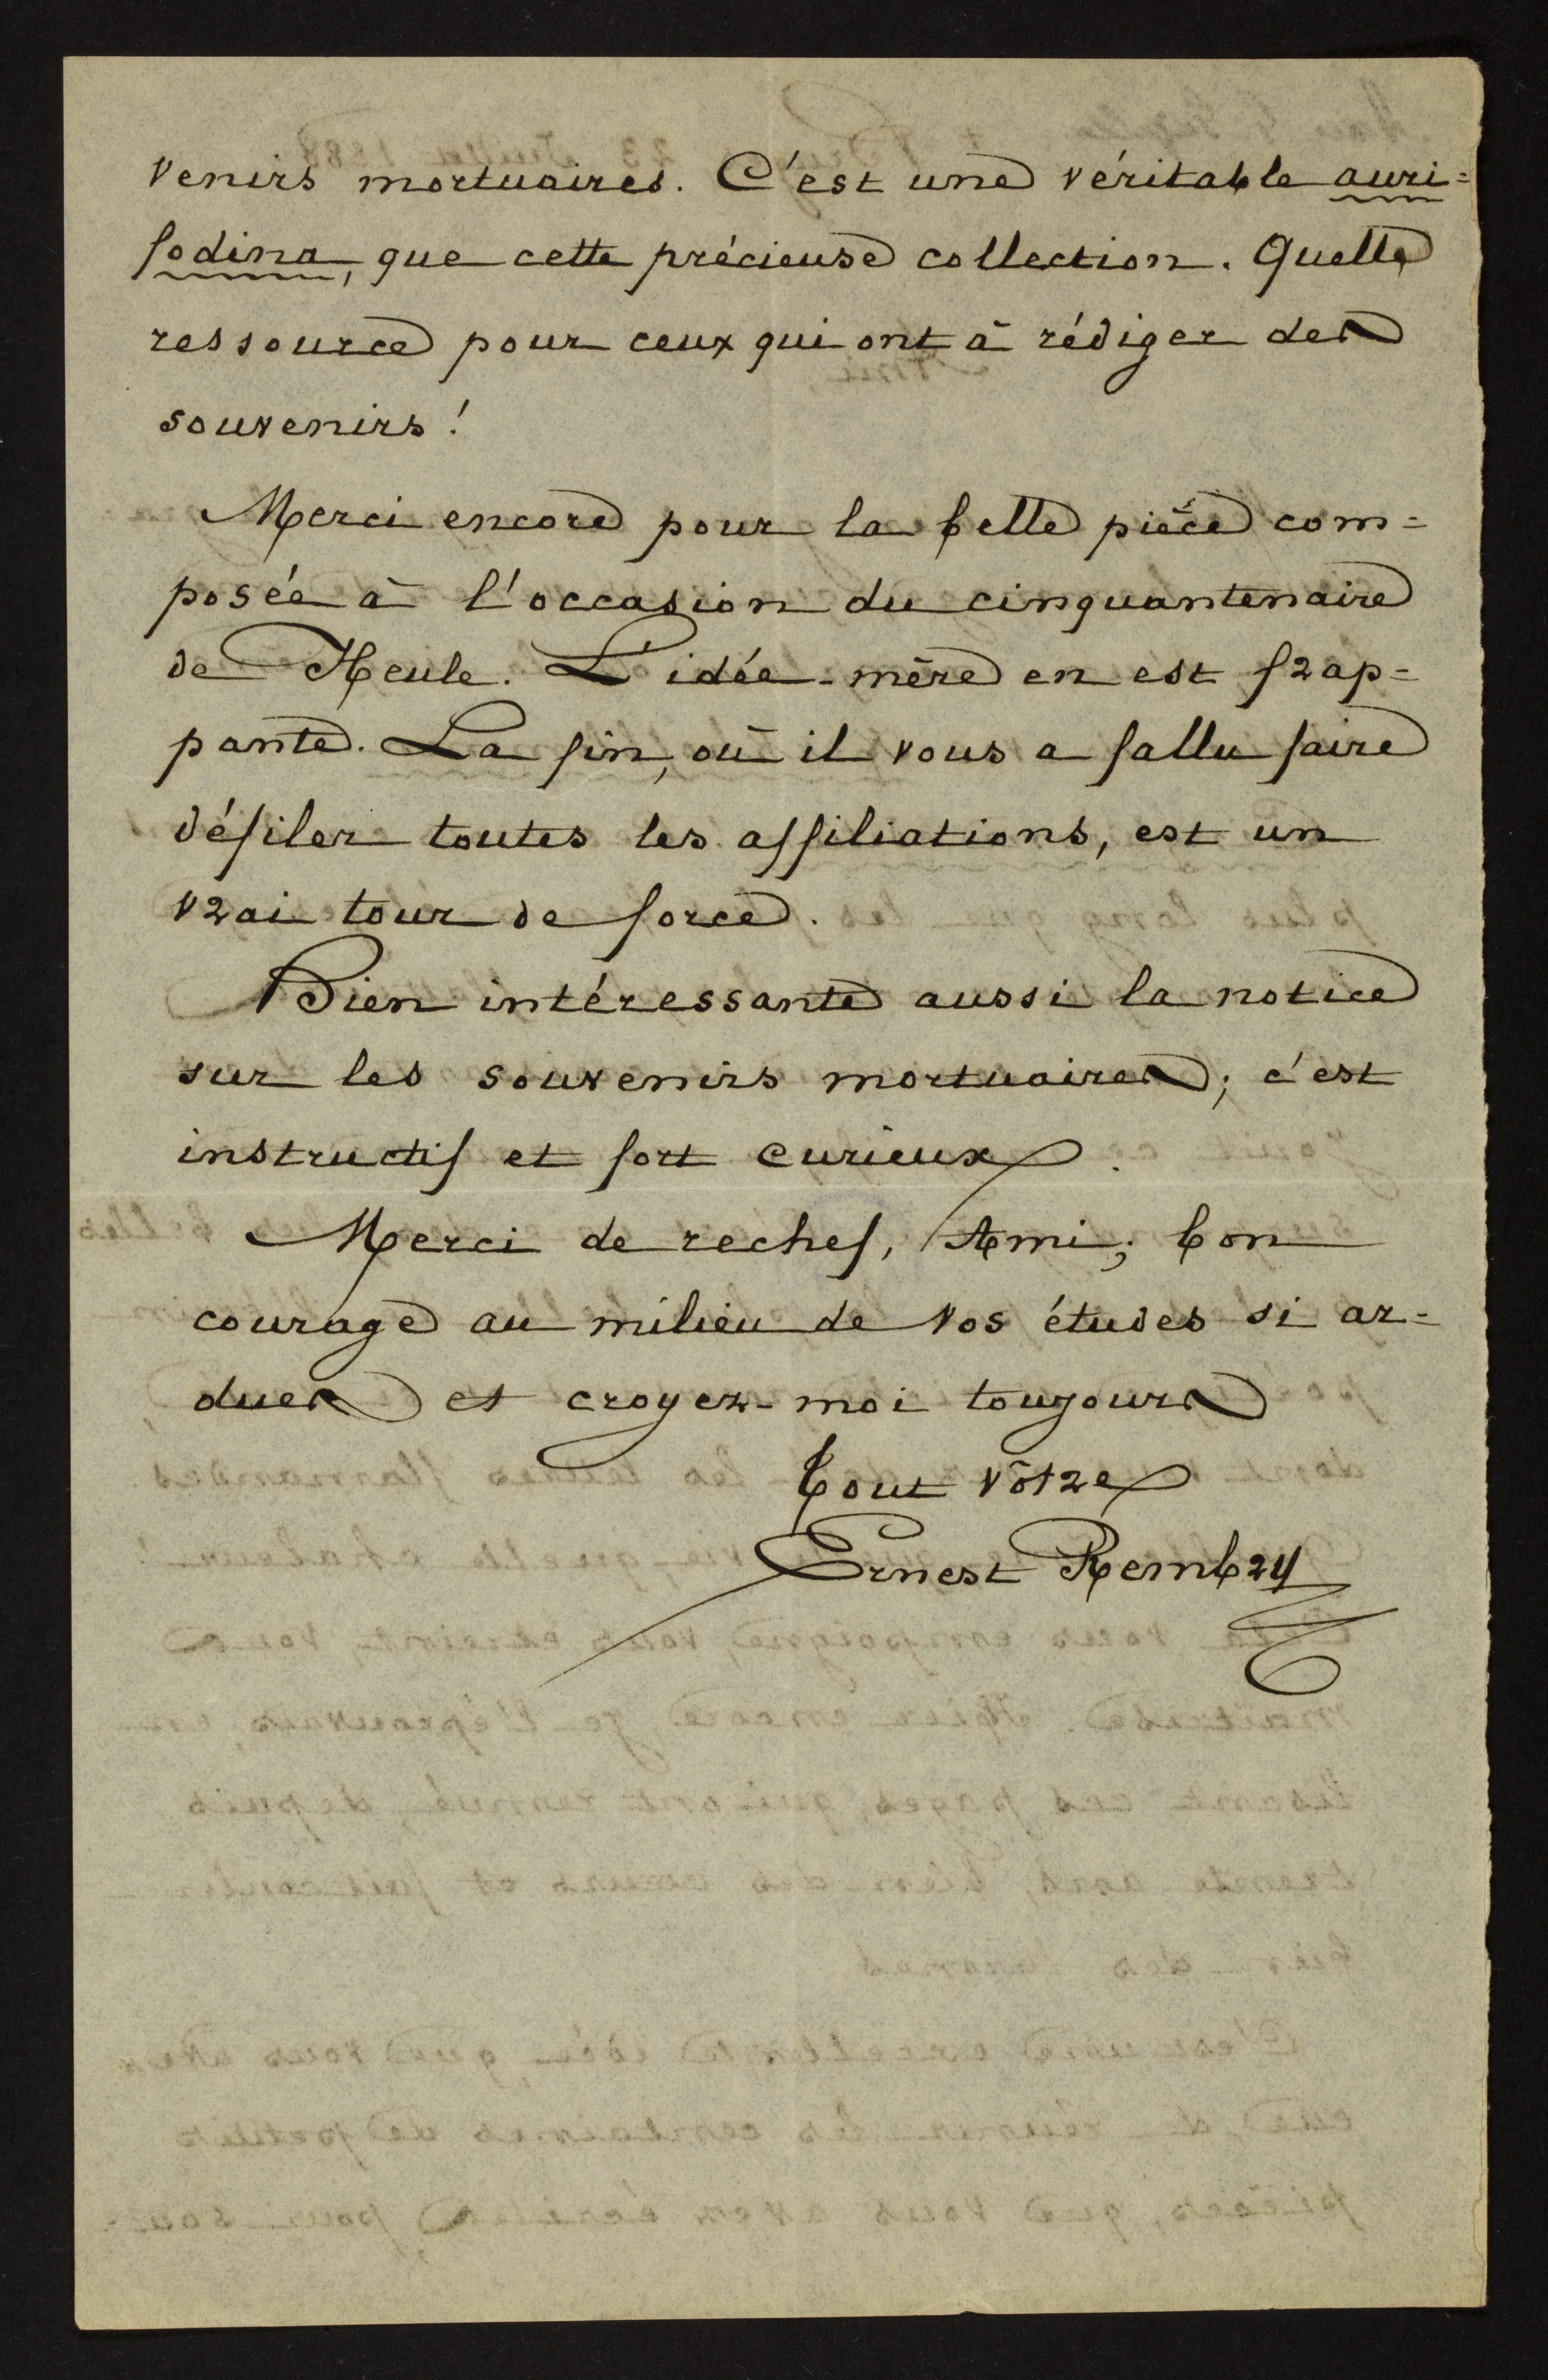 venirs mortuaires. C'est une véritable auri=
fodina, que cette précieuse collection. Quelle
ressource pour ceux qui ont à rédiger des
souvenirs!
Merci encore pour la belle pièce com=
posée à l'occasion du cinquantenaire
de Heule. L'idée-mère en est frap=
pante. La fin, où il vous a fallu faire
défiler toutes les affiliations, est un
vrai tour de force.
Bien intéressante aussi la notice
sur les souvenirs mortuaires; c'est
instructif et fort curieux.
Merci de rechef, Ami; bon
courage au milieu de vos études si ar=
dues et croyez-moi toujours
Tout vôtre
Ernest Rembry